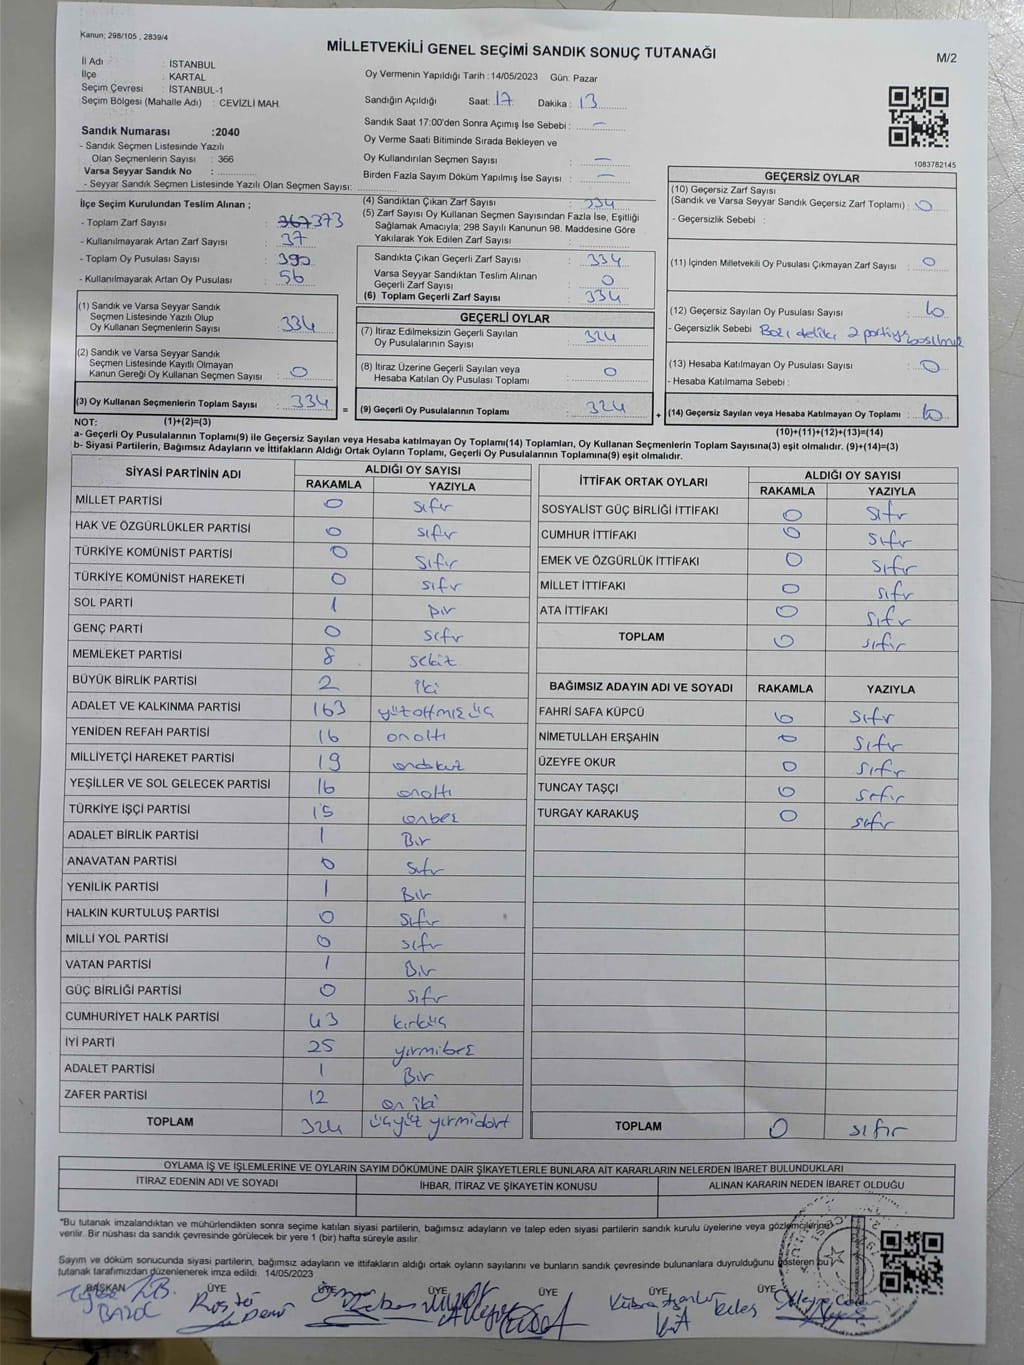 Kanun; 298/105 , 2839/4
MİLLETVEKİLİ GENEL SEÇİMİ SANDIK SONUÇ TUTANAĞI
M/2
İl Adı : İSTANBUL
İlçe : KARTAL
Seçim Çevresi : İSTANBUL-1
Seçim Bölgesi (Mahalle Adı) : CEVİZLİ MAH.
Oy Vermenin Yapıldığı Tarih : 14/05/2023 Gün: Pazar
Sandığın Açıldığı Saat: 17 Dakika : 13
Sandık Saat 17:00'den Sonra Açılmış İse Sebebi : —
Oy Verme Saati Bitiminde Sırada Bekleyen ve
Oy Kullandırılan Seçmen Sayısı : —
Birden Fazla Sayım Döküm Yapılmış İse Sayısı : —
1083782145
Sandık Numarası : 2040
- Sandık Seçmen Listesinde Yazılı
Olan Seçmenlerin Sayısı : 366
Varsa Seyyar Sandık No :
- Seyyar Sandık Seçmen Listesinde Yazılı Olan Seçmen Sayısı:
İlçe Seçim Kurulundan Teslim Alınan ;
- Toplam Zarf Sayısı : 367 373
- Kullanılmayarak Artan Zarf Sayısı : 37
- Toplam Oy Pusulası Sayısı : 390
- Kullanılmayarak Artan Oy Pusulası : 56
(1) Sandık ve Varsa Seyyar Sandık
Seçmen Listesinde Yazılı Olup
Oy Kullanan Seçmenlerin Sayısı : 334
(2) Sandık ve Varsa Seyyar Sandık
Seçmen Listesinde Kayıtlı Olmayan
Kanun Gereği Oy Kullanan Seçmen Sayısı : 0
(3) Oy Kullanan Seçmenlerin Toplam Sayısı : 334
(1)+(2)=(3)
(4) Sandıktan Çıkan Zarf Sayısı : 334
(5) Zarf Sayısı Oy Kullanan Seçmen Sayısından Fazla İse, Eşitliği
Sağlamak Amacıyla; 298 Sayılı Kanunun 98. Maddesine Göre
Yakılarak Yok Edilen Zarf Sayısı :
Sandıkta Çıkan Geçerli Zarf Sayısı : 334
Varsa Seyyar Sandıktan Teslim Alınan
Geçerli Zarf Sayısı : 0
(6) Toplam Geçerli Zarf Sayısı : 334
GEÇERLİ OYLAR
(7) İtiraz Edilmeksizin Geçerli Sayılan
Oy Pusulalarının Sayısı : 324
(8) İtiraz Üzerine Geçerli Sayılan veya
Hesaba Katılan Oy Pusulası Toplamı : 0
= (9) Geçerli Oy Pusulalarının Toplamı : 324
GEÇERSİZ OYLAR
(10) Geçersiz Zarf Sayısı
(Sandık ve Varsa Seyyar Sandık Geçersiz Zarf Toplamı) : 0
- Geçersizlik Sebebi :
(11) İçinden Milletvekili Oy Pusulası Çıkmayan Zarf Sayısı : 0
(12) Geçersiz Sayılan Oy Pusulası Sayısı : 10
- Geçersizlik Sebebi : 2 partiye basılmış
(13) Hesaba Katılmayan Oy Pusulası Sayısı : 0
- Hesaba Katılmama Sebebi :
+ (14) Geçersiz Sayılan veya Hesaba Katılmayan Oy Toplamı : 10
(10)+(11)+(12)+(13)=(14)
NOT:
a- Geçerli Oy Pusulalarının Toplamı(9) ile Geçersiz Sayılan veya Hesaba katılmayan Oy Toplamı(14) Toplamları, Oy Kullanan Seçmenlerin Toplam Sayısına(3) eşit olmalıdır. (9)+(14)=(3)
b- Siyasi Partilerin, Bağımsız Adayların ve İttifakların Aldığı Ortak Oyların Toplamı, Geçerli Oy Pusulalarının Toplamına(9) eşit olmalıdır.
SİYASİ PARTİNİN ADI ALDIĞI OY SAYISI
RAKAMLA YAZIYLA
MİLLET PARTİSİ 0 sıfır
HAK VE ÖZGÜRLÜKLER PARTİSİ 0 sıfır
TÜRKİYE KOMÜNİST PARTİSİ 0 sıfır
TÜRKİYE KOMÜNİST HAREKETİ 0 sıfır
SOL PARTİ 1 bir
GENÇ PARTİ 0 sıfır
MEMLEKET PARTİSİ 8 sekiz
BÜYÜK BİRLİK PARTİSİ 2 iki
ADALET VE KALKINMA PARTİSİ 163 yüzaltmışüç
YENİDEN REFAH PARTİSİ 16 onaltı
MİLLİYETÇİ HAREKET PARTİSİ 19 ondokuz
YEŞİLLER VE SOL GELECEK PARTİSİ 16 onaltı
TÜRKİYE İŞÇİ PARTİSİ 15 onbeş
ADALET BİRLİK PARTİSİ 1 Bir
ANAVATAN PARTİSİ 0 sıfır
YENİLİK PARTİSİ 1 Bir
HALKIN KURTULUŞ PARTİSİ 0 sıfır
MİLLİ YOL PARTİSİ 0 sıfır
VATAN PARTİSİ 1 Bir
GÜÇ BİRLİĞİ PARTİSİ 0 sıfır
CUMHURİYET HALK PARTİSİ 43 kırküç
İYİ PARTİ 25 yirmibeş
ADALET PARTİSİ 1 Bir
ZAFER PARTİSİ 12 on iki
TOPLAM 324 üçyüz yirmidört
İTTİFAK ORTAK OYLARI ALDIĞI OY SAYISI
RAKAMLA YAZIYLA
SOSYALİST GÜÇ BİRLİĞİ İTTİFAKI 0 sıfır
CUMHUR İTTİFAKI 0 sıfır
EMEK VE ÖZGÜRLÜK İTTİFAKI 0 sıfır
MİLLET İTTİFAKI 0 sıfır
ATA İTTİFAKI 0 sıfır
TOPLAM 0 sıfır
BAĞIMSIZ ADAYIN ADI VE SOYADI RAKAMLA YAZIYLA
FAHRİ SAFA KÜPCÜ 0 sıfır
NİMETULLAH ERŞAHİN 0 sıfır
ÜZEYFE OKUR 0 sıfır
TUNCAY TAŞÇI 0 sıfır
TURGAY KARAKUŞ 0 sıfır
TOPLAM 0 sıfır
OYLAMA İŞ VE İŞLEMLERİNE VE OYLARIN SAYIM DÖKÜMÜNE DAİR ŞİKAYETLERLE BUNLARA AİT KARARLARIN NELERDEN İBARET BULUNDUKLARI
İTİRAZ EDENİN ADI VE SOYADI İHBAR, İTİRAZ VE ŞİKAYETİN KONUSU ALINAN KARARIN NEDEN İBARET OLDUĞU
*Bu tutanak imzalandıktan ve mühürlendikten sonra seçime katılan siyasi partilerin, bağımsız adayların ve talep eden siyasi partilerin sandık kurulu üyelerine veya gözlemcilerine
verilir. Bir nüshası da sandık çevresinde görülecek bir yere 1 (bir) hafta süreyle asılır.
Sayım ve döküm sonucunda siyasi partilerin, bağımsız adayların ve ittifakların aldığı ortak oyların sayılarını ve bunların sandık çevresinde bulunanlara duyurulduğunu gösteren bu
tutanak tarafımızdan düzenlenerek imza edildi. 14/05/2023
BAŞKAN ÜYE ÜYE ÜYE ÜYE ÜYE ÜYE